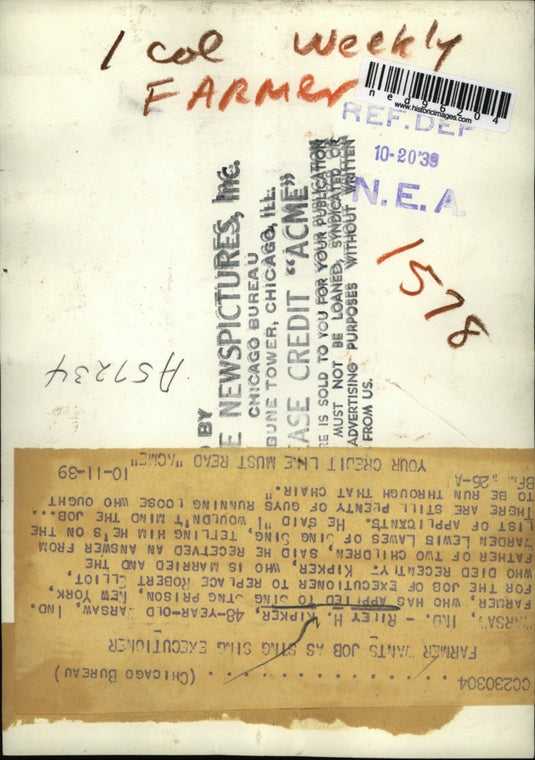 1 col Weekly
FARMer
ned96204
www.historicimages.com
REF. DEP
10-20'39
N.E.A.
1578
BY
E NEWSPICTURES, Inc.
CHICAGO BUREAU
BUNE TOWER, CHICAGO, ILL.
ASE CREDIT "ACME"
RE IS SOLD TO YOU FOR YOUR PUBLICATION
MUST NOT BE LOANED, SYNDICATED OR
ADVERTISING PURPOSES WITHOUT WRITTEN
FROM US.
A51234
CC230304 (CHICAGO BUREAU)
FARMER WANTS JOB AS SING SING EXECUTIONER
WARSAW, IND. - RILEY H. KIPKER, 48-YEAR-OLD WARSAW, IND.
FARMER, WHO HAS APPLIED TO SING SING PRISON, NEW YORK,
FOR THE JOB OF EXECUTIONER TO REPLACE ROBERT ELLIOT,
WHO DIED RECENTLY. KIPKER, WHO IS MARRIED AND THE
FATHER OF TWO CHILDREN, SAID HE RECEIVED AN ANSWER FROM
WARDEN LEWIS LAWES OF SING SING, TELLING HIM HE'S ON THE
LIST OF APPLICANTS. HE SAID "I WOULDN'T MIND THE JOB...
THERE ARE STILL PLENTY OF GUYS RUNNING LOOSE WHO OUGHT
TO BE RUN THROUGH THAT CHAIR."
26-A
YOUR CREDIT LINE MUST READ "ACME" 10-11-39